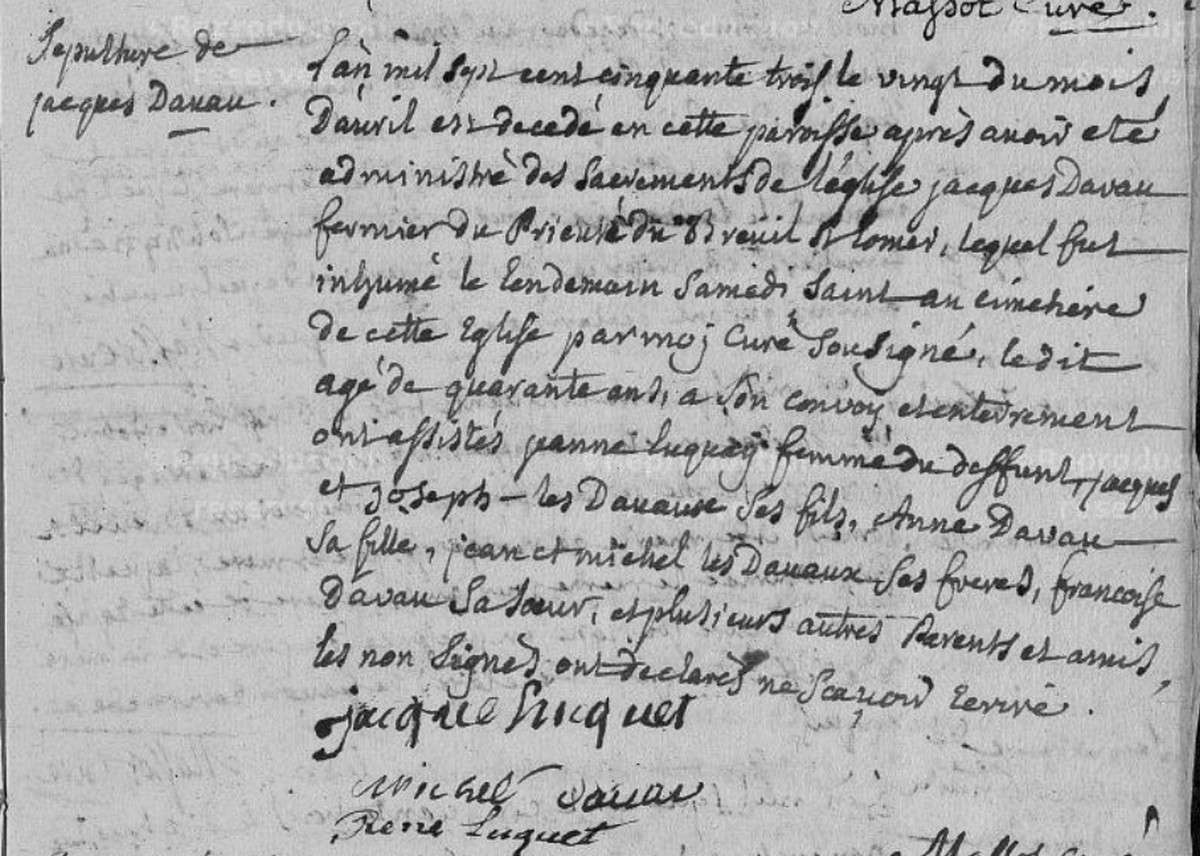 Massot Curé.
Sepulture de
jacques Davau.
l'an mil sept cent cinquante trois le vingt du mois
D'auril est decedé en cette paroisse apres auoir eté
administré des sacrements de l'église jacques Davau
fermier du Prieuré du Breuil St lomer, lequel fut
inhumé le lendemain Samedi Saint au cimetiere
de cette Eglise par moj Curé Sousigné, ledit
agé de quarante ans, a son convoy et enterrement
ont assistés jeanne luquet femme du deffunt, jacques
et joseph les Dauaux ses fils, Anne Davau
sa fille, jean et michel les Dauaux ses freres, francoise
Davau sa soeur, et plusieurs autres Parents et amis,
les non signés ont declarés ne scauoir Ecrire.
jacque lucquet
Michel Dauau
René Luquet